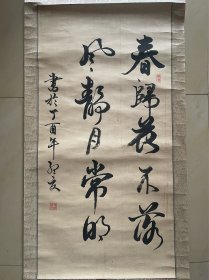 春歸花不落
風靜月常明
書於丁酉年